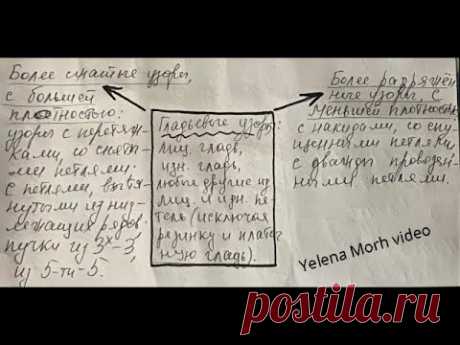 Более сжатые узоры,
с большей
плотностью:
узоры с перетяж-
ками, со сняты-
ми петлями.
С петлями, вытя-
нутыми из ниж-
лежащих рядов.
пучки из 3х-3,
из 5-ти-5.
Гладьевые узоры:
лиц. гладь,
изн. гладь,
любые другие из
лиц. и изн. пе-
тель (исключая
резинку и платоч-
ную гладь).
Более разряжён-
ные узоры. С
меньшей плотностью
с накидами, со спу-
щенными петлями
с дважды проведен-
ными петлями.
Yelena Morh video
postila.ru